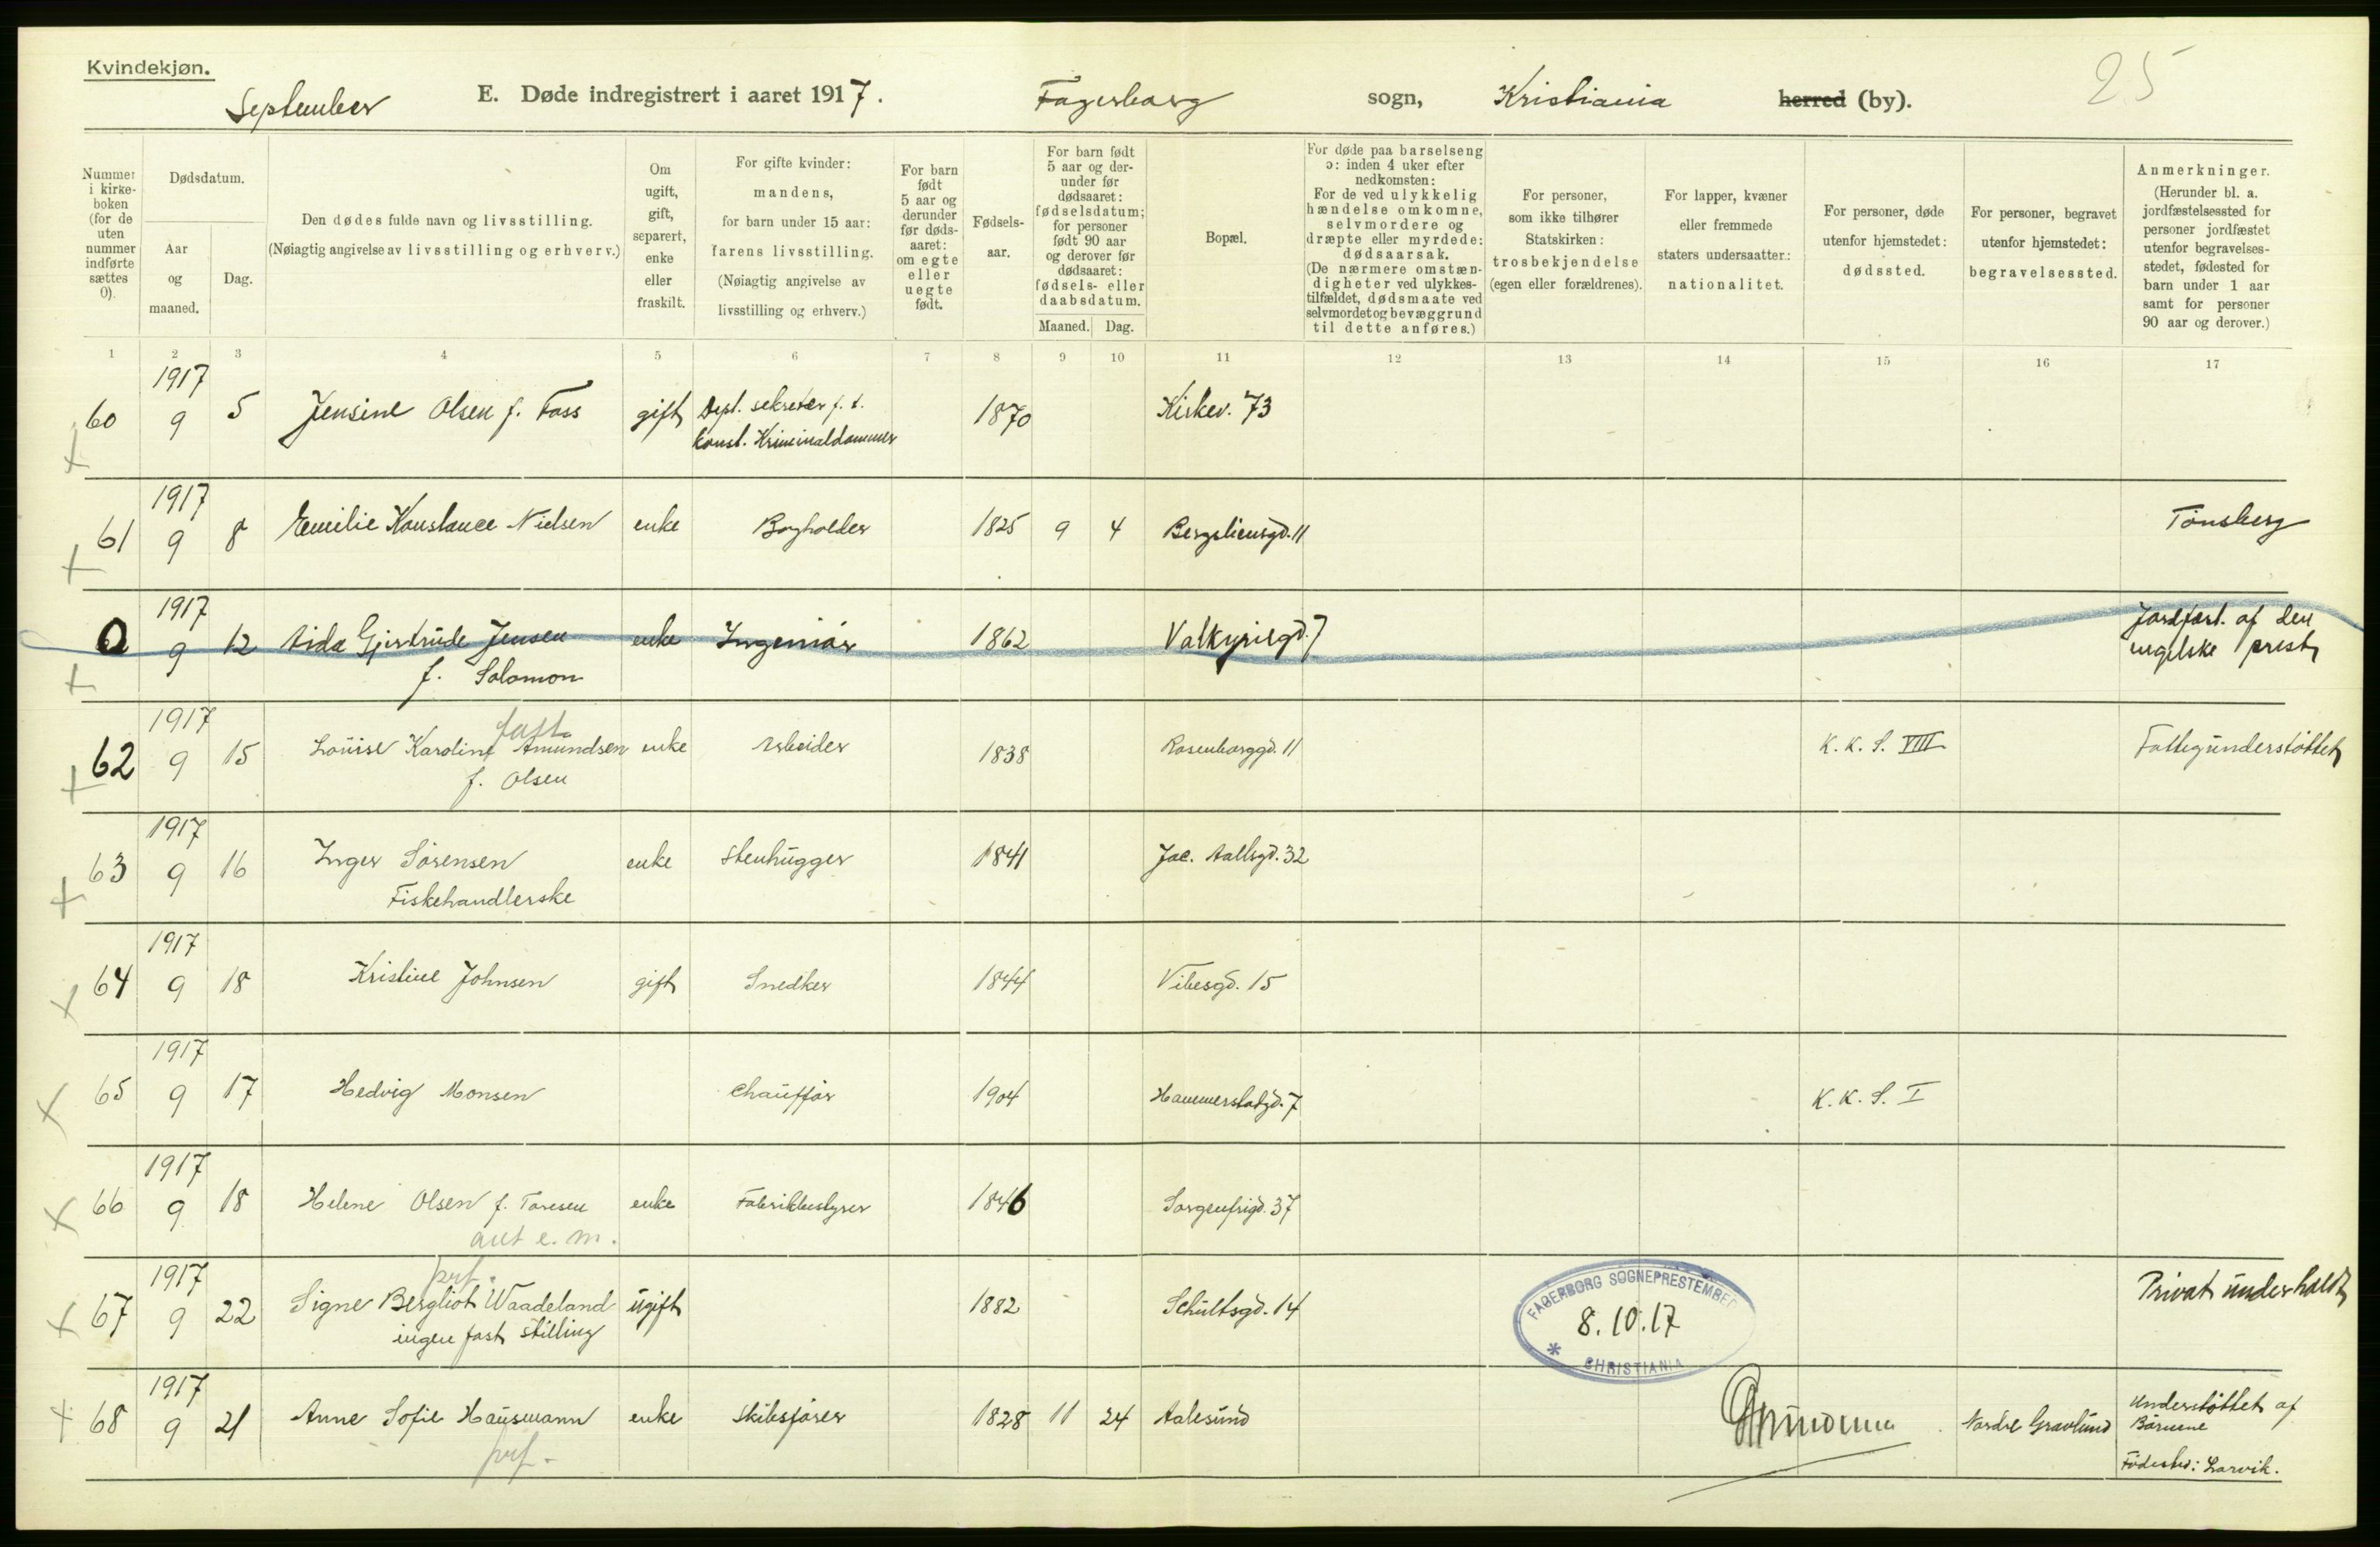 Kvindekjøn.
September
E. Døde indregistrert i aaret 1917.
Fagerborg sogn, Kristiania herred (by).
25
Nummer i kirkeboken (for de uten nummer indførte sættes 0).
Dødsdatum.
Aar og maaned.
Dag.
Den dødes fulde navn og livsstilling.
(Nøiagtig angivelse av livsstilling og erhverv.)
Om ugift, gift, separert, enke eller fraskilt.
For gifte kvinder: mandens, for barn under 15 aar: farens livsstilling.
(Nøiagtig angivelse av livsstilling og erhverv.)
For barn født 5 aar og derunder før dødsaaret: om egte eller uegte født.
Fødselsaar.
For barn født 5 aar og derunder før dødsaaret: fødselsdatum; for personer født 90 aar og derover før dødsaaret: fødsels- eller daabsdatum.
Maaned. Dag.
Bopæl.
For døde paa barselseng ɔ: inden 4 uker efter nedkomsten: For de ved ulykkelig hændelse omkomne, selvmordere og dræpte eller myrdede: dødsaarsak.
(De nærmere omstændigheter ved ulykkestilfældet, dødsmaate ved selvmordet og bevæggrund til dette anføres.)
For personer, som ikke tilhører Statskirken: trosbekjendelse (egen eller forældrenes).
For lapper, kvæner eller fremmede staters undersaatter: nationalitet.
For personer, døde utenfor hjemstedet: dødssted.
For personer, begravet utenfor hjemstedet: begravelsessted.
Anmerkninger.
(Herunder bl. a. jordfæstelsessted for personer jordfæstet utenfor begravelsesstedet, fødested for barn under 1 aar samt for personer 90 aar og derover.)
1 2 3 4 5 6 7 8 9 10 11 12 13 14 15 16 17
1917
60 9 5 Jensine Olsen f. Foss gift Dept. sekretær f. t. 1870 Kirkev. 73
konst. Kriminaldommer
1917
61 9 8 Emilie Konstance Nielsen enke Bogholder 1825 9 4 Bergsliensgd. 11 Tønsberg
1917
0 9 12 Aida Gjertrude Jensen enke Ingeniør 1862 Valkyriegd. 7 Jordfæst. af den
f. Solomon engelske prest
1917
62 9 15 Louise Karoline Amundsen enke Arbeider 1838 Rosenborggd. 11 K. K. S. VIII Fattigunderstøttet
f. Olsen
1917
63 9 16 Inger Sørensen enke Stenhugger 1841 Jac. Aallsgd. 32
Fiskehandlerske
1917
64 9 18 Kristine Johnsen gift Snedker 1844 Vibesgd. 15
1917
65 9 17 Hedvig Monsen Chauffør 1904 Hammerstadgd. 7 K. K. S. I
1917
66 9 18 Helene Olsen f. Toresen enke Fabrikbestyrer 1846 Sorgenfrigd. 37
e. m.
1917
67 9 22 Signe Bergliot Waadeland ugift 1882 Schultsgd. 14 Privat underholdt
ingen fast stilling
FAGERBORG SOGNEPRESTEMBED
8.10.17
CHRISTIANIA
1917
68 9 21 Anne Sofie Hausmann enke Skibsfører 1828 11 24 Aalesund Nordre Gravlund Understøttet af
Børnene
Fødested: Larvik.